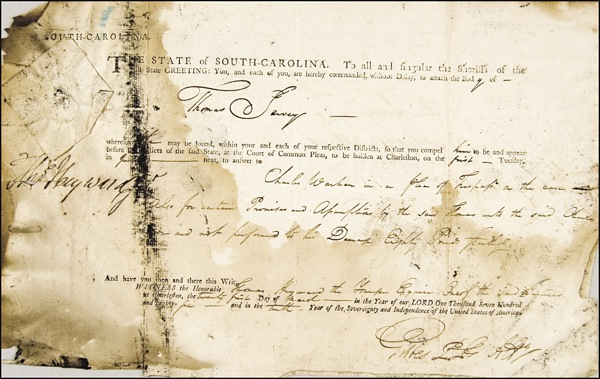 SOUTH-CAROLINA.
THE STATE of SOUTH-CAROLINA. To all and singular the Sheriffs of the
State GREETING: You, and each of you, are hereby commanded, without Delay, to attach the Body of —
Thomas
wheresoever may be found, within your and each of your respective Districts, so that you compel him to be and appear
before the Justices of the said State, at the Court of Common Pleas, to be holden at Charleston, on the first Tuesday,
in next, to answer to
Charles in a Plea of Trespass on the case
Thos Heyward Junr
Also for certain Promises and Assumptions by the said Thomas unto the said Charles
and not performed to his Damage Eighty Pounds Sterling
And have you then and there this Writ.
WITNESS the Honorable Thomas Heyward the Younger Esquire One of the
at Charleston, the twenty first Day of March in the Year of our LORD One Thousand Seven Hundred
and Eighty six and in the tenth Year of the Sovereignty and Independence of the United States of America.